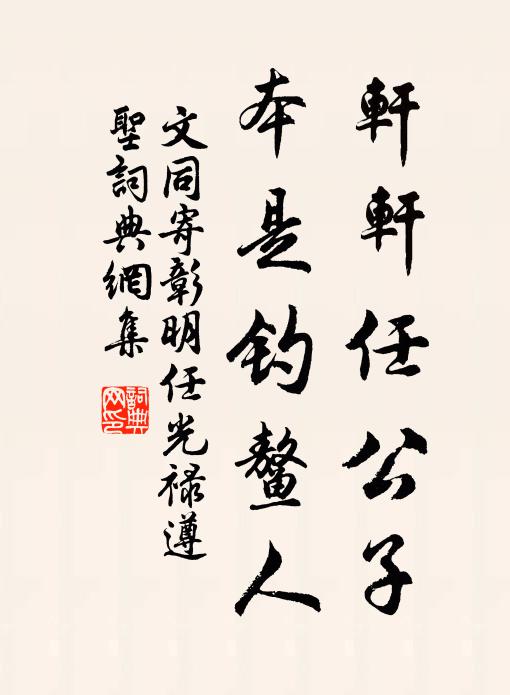 軒軒任公子
本是釣鰲人
文同寄彰明任光祿遵
聖詞典網集
詞典網印